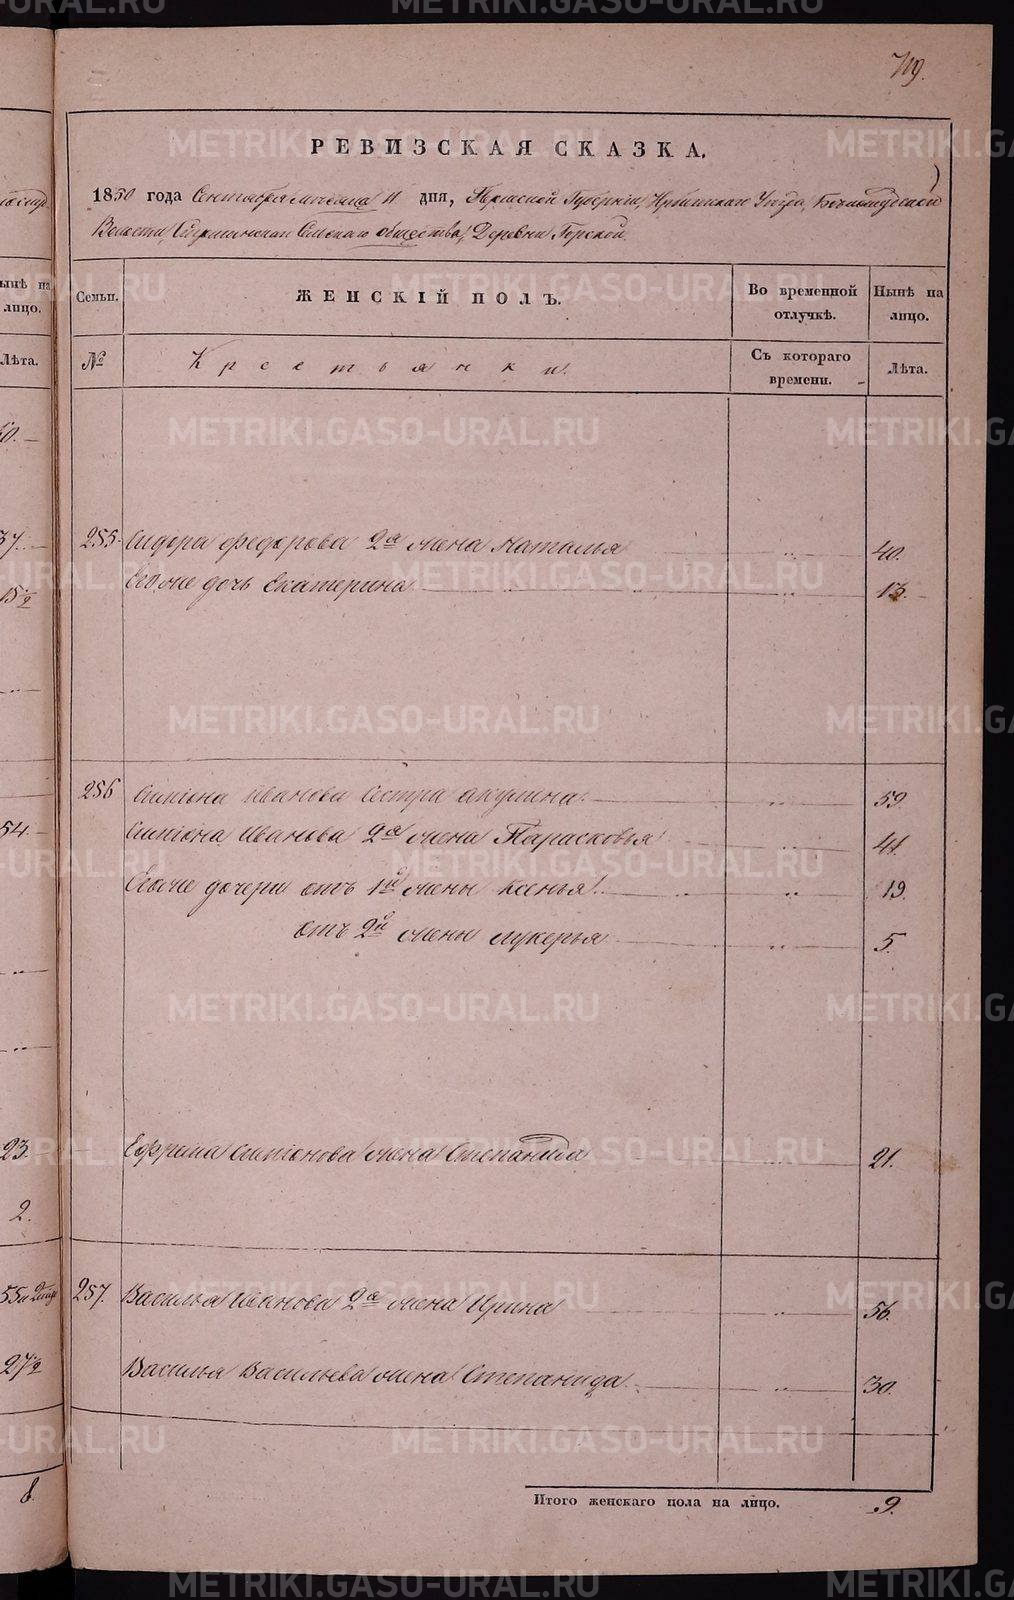 719.
РЕВИЗСКАЯ СКАЗКА.
1850 года Сентября месяца 11 дня, Пермской Губернии, Ирбитскаго Уезда,
Волости, Сельскаго общества, Деревни Горской.
Семьи. ЖЕНСКІЙ ПОЛЪ. Во временной отлучкѣ. Нынѣ на лицо.
№ Крестьянки. Съ котораго времени. Лѣта.
255. Сидора Федорова 2а жена Наталья 40.
Его же дочь Екатерина 13.
256 Симіона Иванова сестра Акулина. 59.
Симіона Иванова 2а жена Парасковья 41.
Егоже дочери отъ 1й жены Ксенья 19.
отъ 2й жены Лукерья 5.
Ефрема Симіонова жена Степанида 21.
257. Василья Иванова 2а жена Ирина 56.
Василья Васильева жена Степанида 30.
Итого женскаго пола на лицо. 9.
ынѣ на
лицо.
Лѣта.
37.
15½
54.
23.
2.
27½
8.
METRIKI.GASO-URAL.RU